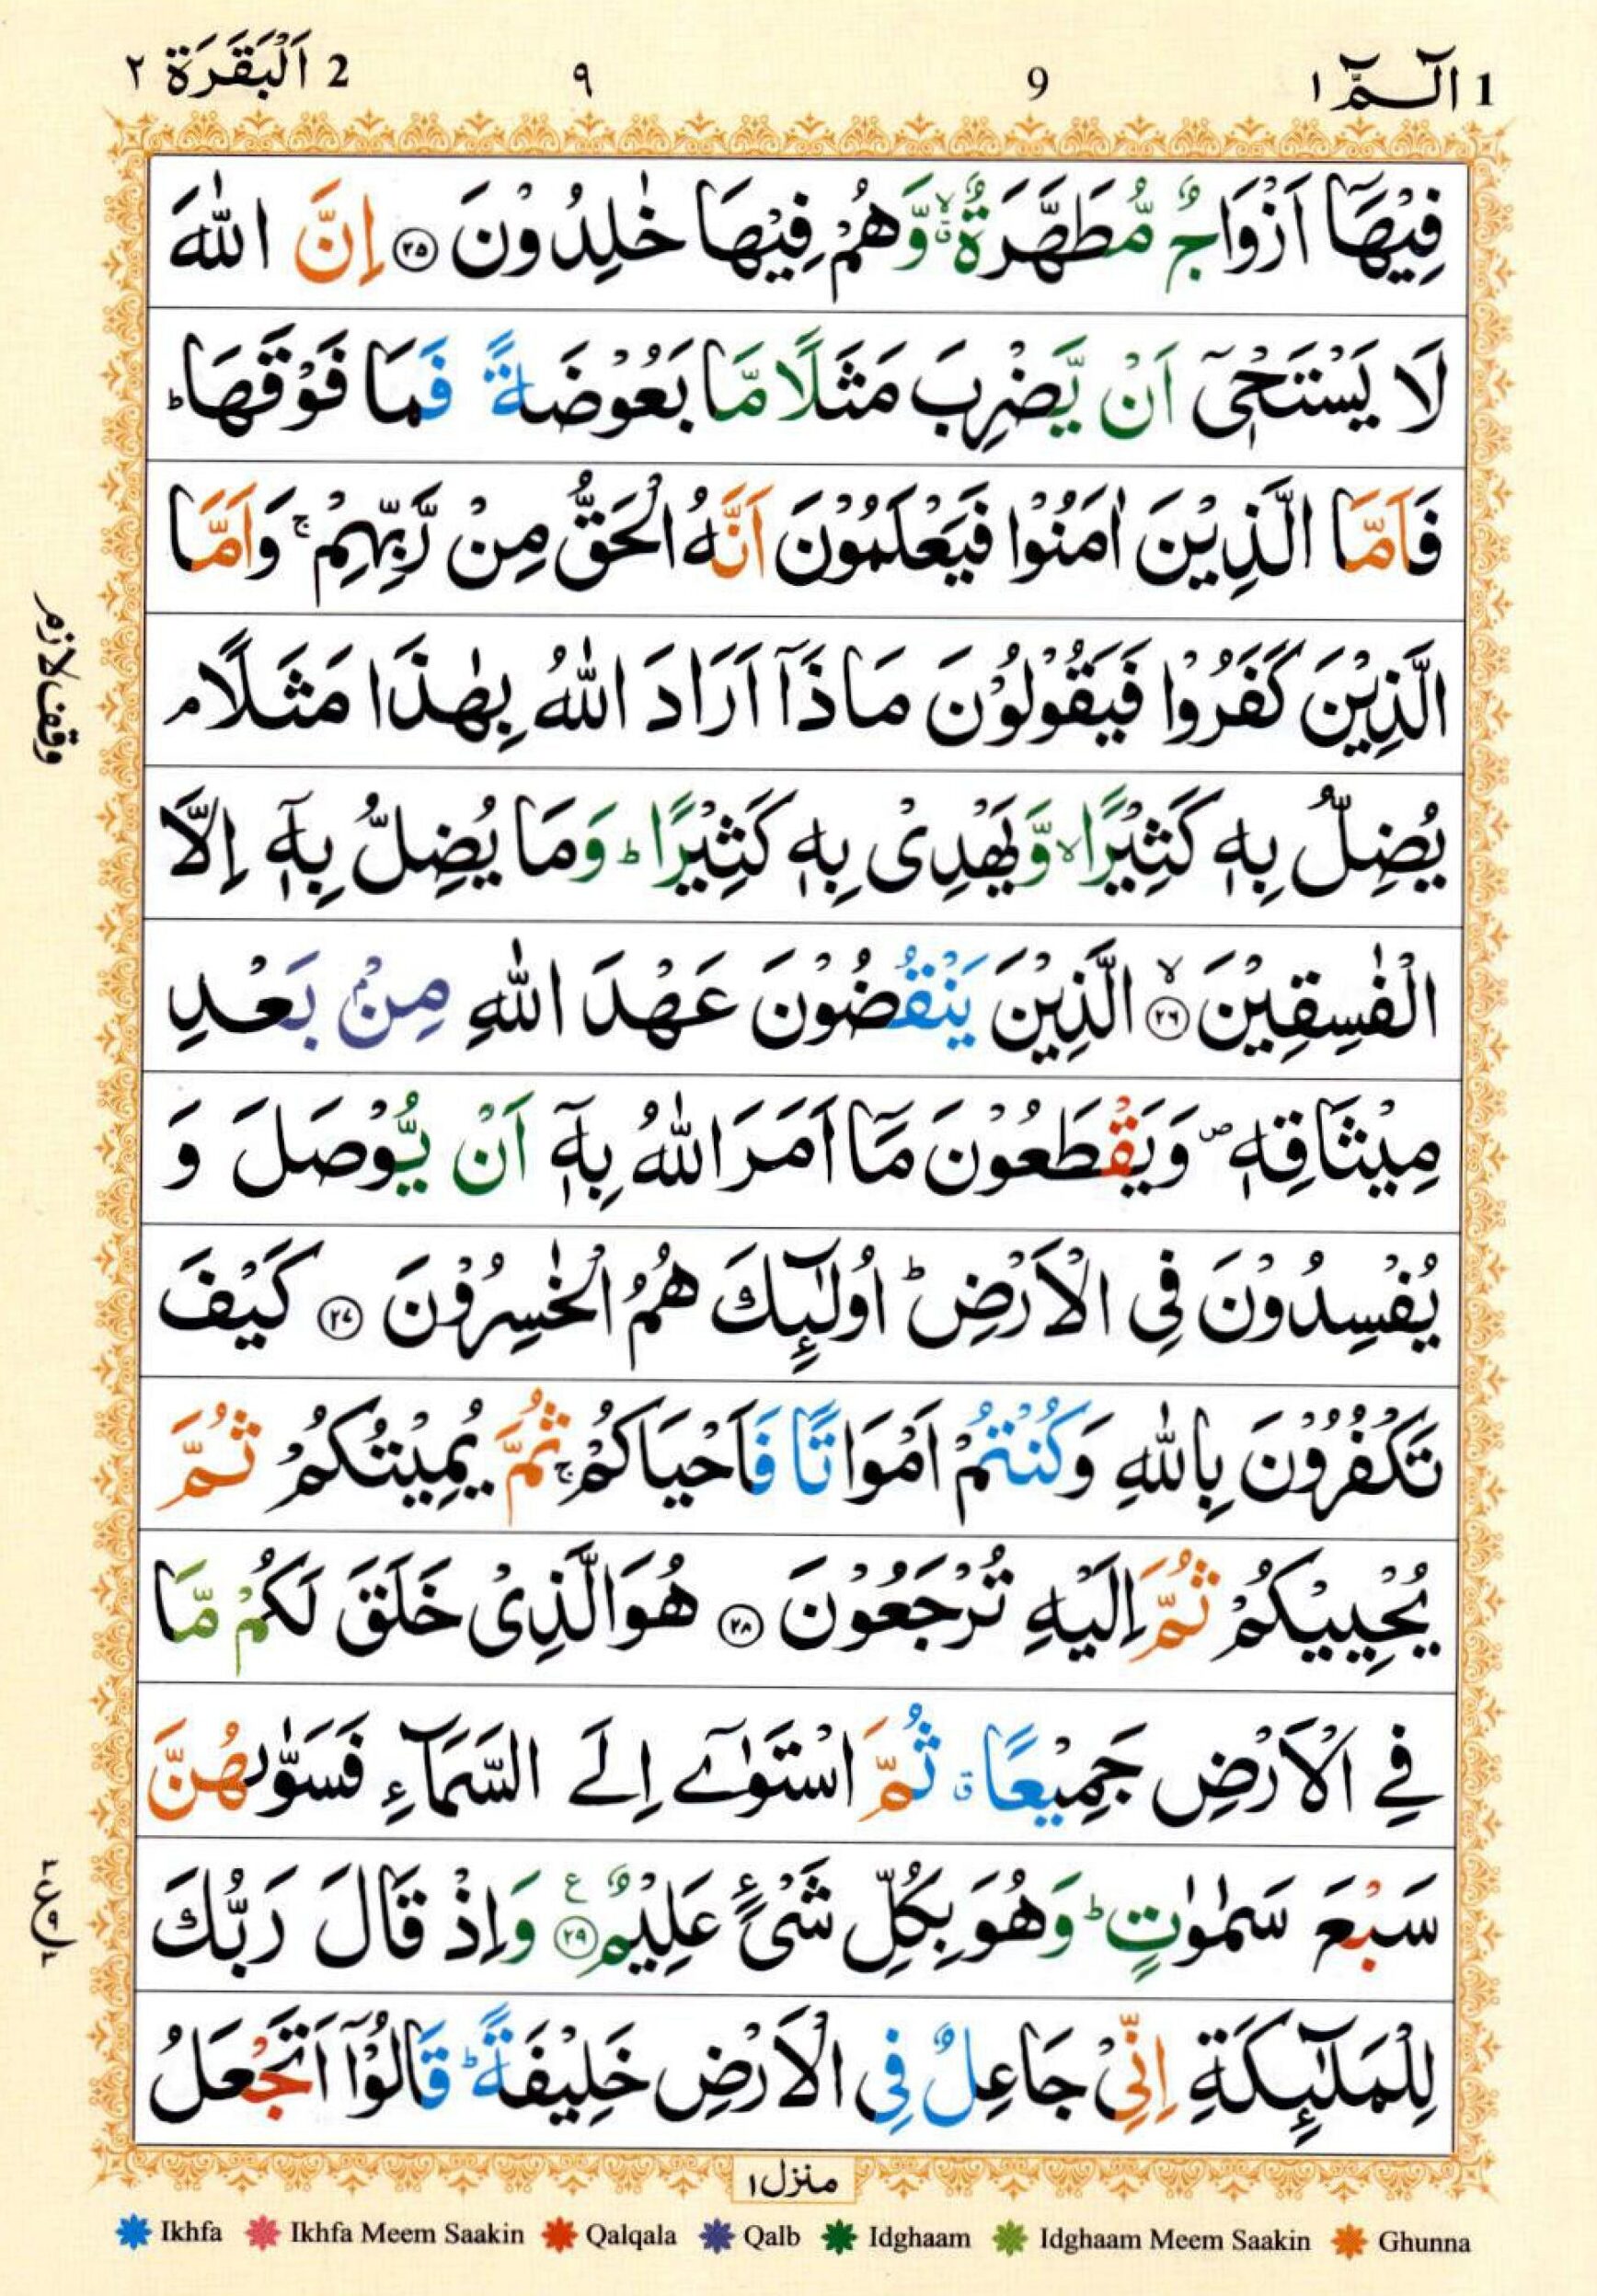 1 الٓـمّٓ ١ 9 ٩ 2 اَلْبَقَرَة ٢
فِيْهَآ اَزْوَاجٌ مُّطَهَّرَةٌ ۙۗ وَّهُمْ فِيْهَا خٰلِدُوْنَ ﴿۲۵﴾ اِنَّ اللّٰهَ
لَا يَسْتَحْيٖۤ اَنْ يَّضْرِبَ مَثَلًا مَّا بَعُوْضَةً فَمَا فَوْقَهَا ؕ
فَاَمَّا الَّذِيْنَ اٰمَنُوْا فَيَعْلَمُوْنَ اَنَّهُ الْحَقُّ مِنْ رَّبِّهِمْ ۚ وَاَمَّا
الَّذِيْنَ كَفَرُوْا فَيَقُوْلُوْنَ مَاذَآ اَرَادَ اللّٰهُ بِهٰذَا مَثَلًا ۘ
وقف لازم
يُضِلُّ بِهٖ كَثِيْرًا ۙ وَّيَهْدِىْ بِهٖ كَثِيْرًا ؕ وَمَا يُضِلُّ بِهٖۤ اِلَّا
الْفٰسِقِيْنَ ۙ﴿۲۶﴾ الَّذِيْنَ يَنْقُضُوْنَ عَهْدَ اللّٰهِ مِنْۢ بَعْدِ
مِيْثَاقِهٖ ۪ وَيَقْطَعُوْنَ مَآ اَمَرَ اللّٰهُ بِهٖۤ اَنْ يُّوْصَلَ وَ
يُفْسِدُوْنَ فِى الْاَرْضِ ؕ اُولٰٓئِكَ هُمُ الْخٰسِرُوْنَ ﴿۲۷﴾ كَيْفَ
تَكْفُرُوْنَ بِاللّٰهِ وَكُنْتُمْ اَمْوَاتًا فَاَحْيَاكُمْ ۚ ثُمَّ يُمِيْتُكُمْ ثُمَّ
يُحْيِيْكُمْ ثُمَّ اِلَيْهِ تُرْجَعُوْنَ ﴿۲۸﴾ هُوَ الَّذِىْ خَلَقَ لَكُمْ مَّا
فِى الْاَرْضِ جَمِيْعًا ۗ ثُمَّ اسْتَوٰٓى اِلَى السَّمَآءِ فَسَوّٰىهُنَّ
سَبْعَ سَمٰوٰتٍ ؕ وَهُوَ بِكُلِّ شَىْءٍ عَلِيْمٌ ﴿۲۹﴾ ع وَاِذْ قَالَ رَبُّكَ
لِلْمَلٰٓئِكَةِ اِنِّىْ جَاعِلٌ فِى الْاَرْضِ خَلِيْفَةً ؕ قَالُوْٓا اَتَجْعَلُ
منزل ١
Ikhfa Ikhfa Meem Saakin Qalqala Qalb Idghaam Idghaam Meem Saakin Ghunna